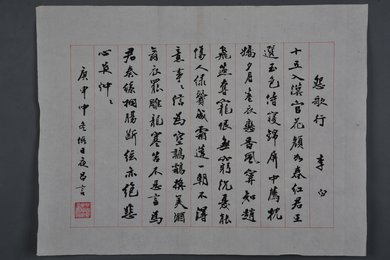 怨歌行 李白
十五入漢宮花顏笑春紅君王
選玉色侍寢錦屏中薦枕
嬌夕月卷衣戀春風寧知趙
飛燕奪寵恨無窮沉憂能
傷人綠鬢成霜蓬一朝不得
意事為空鷫鸘換美酒
舞衣罷雕龍寒苦不忍言為
君奏絲桐腸斷弦亦絕悲
心夜忡々
庚申仲冬日夜